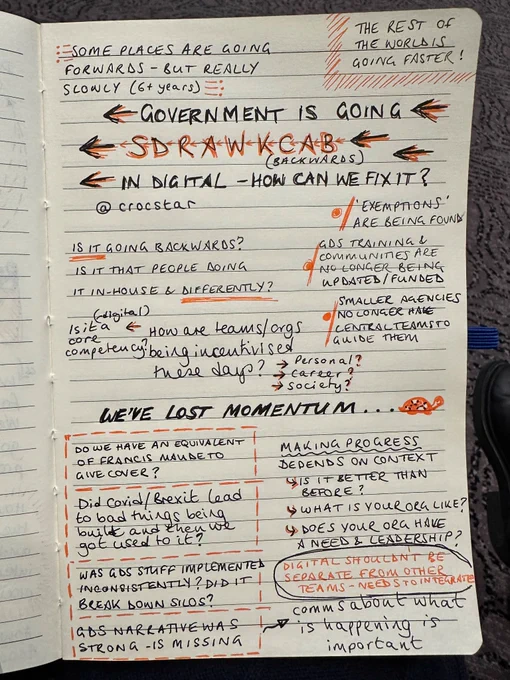 SOME PLACES ARE GOING
FORWARDS - BUT REALLY
SLOWLY (6+ years)
THE REST OF
THE WORLD IS
GOING FASTER!
GOVERNMENT IS GOING
SDRAWKCAB
(BACKWARDS)
IN DIGITAL - HOW CAN WE FIX IT?
@crocstar
'EXEMPTIONS'
ARE BEING FOUND
GDS TRAINING &
COMMUNITIES ARE
NO LONGER BEING
UPDATED/FUNDED
SMALLER AGENCIES
NO LONGER HAVE
CENTRAL TEAMS TO
GUIDE THEM
IS IT GOING BACKWARDS?
IS IT THAT PEOPLE DOING
IT IN-HOUSE & DIFFERENTLY?
(digital)
Is it a
core
competency?
How are teams/orgs
being incentivised
these days?
Personal?
career?
society?
WE'VE LOST MOMENTUM....
DO WE HAVE AN EQUIVALENT
OF FRANCIS MAUDE TO
GIVE COVER?
Did Covid/Brexit lead
to bad things being
built and then we
got used to it?
WAS GDS STUFF IMPLEMENTED
INCONSISTENTLY? DID IT
BREAK DOWN SILOS?
GDS NARRATIVE WAS
STRONG - IS MISSING
MAKING PROGRESS
DEPENDS ON CONTEXT
IS IT BETTER THAN
BEFORE?
WHAT IS YOUR ORG LIKE?
DOES YOUR ORG HAVE
A NEED & LEADERSHIP?
DIGITAL SHOULDNT BE
SEPARATE FROM OTHER
TEAMS - NEEDS TO INTEGRATE
comms about what
is happening is
important